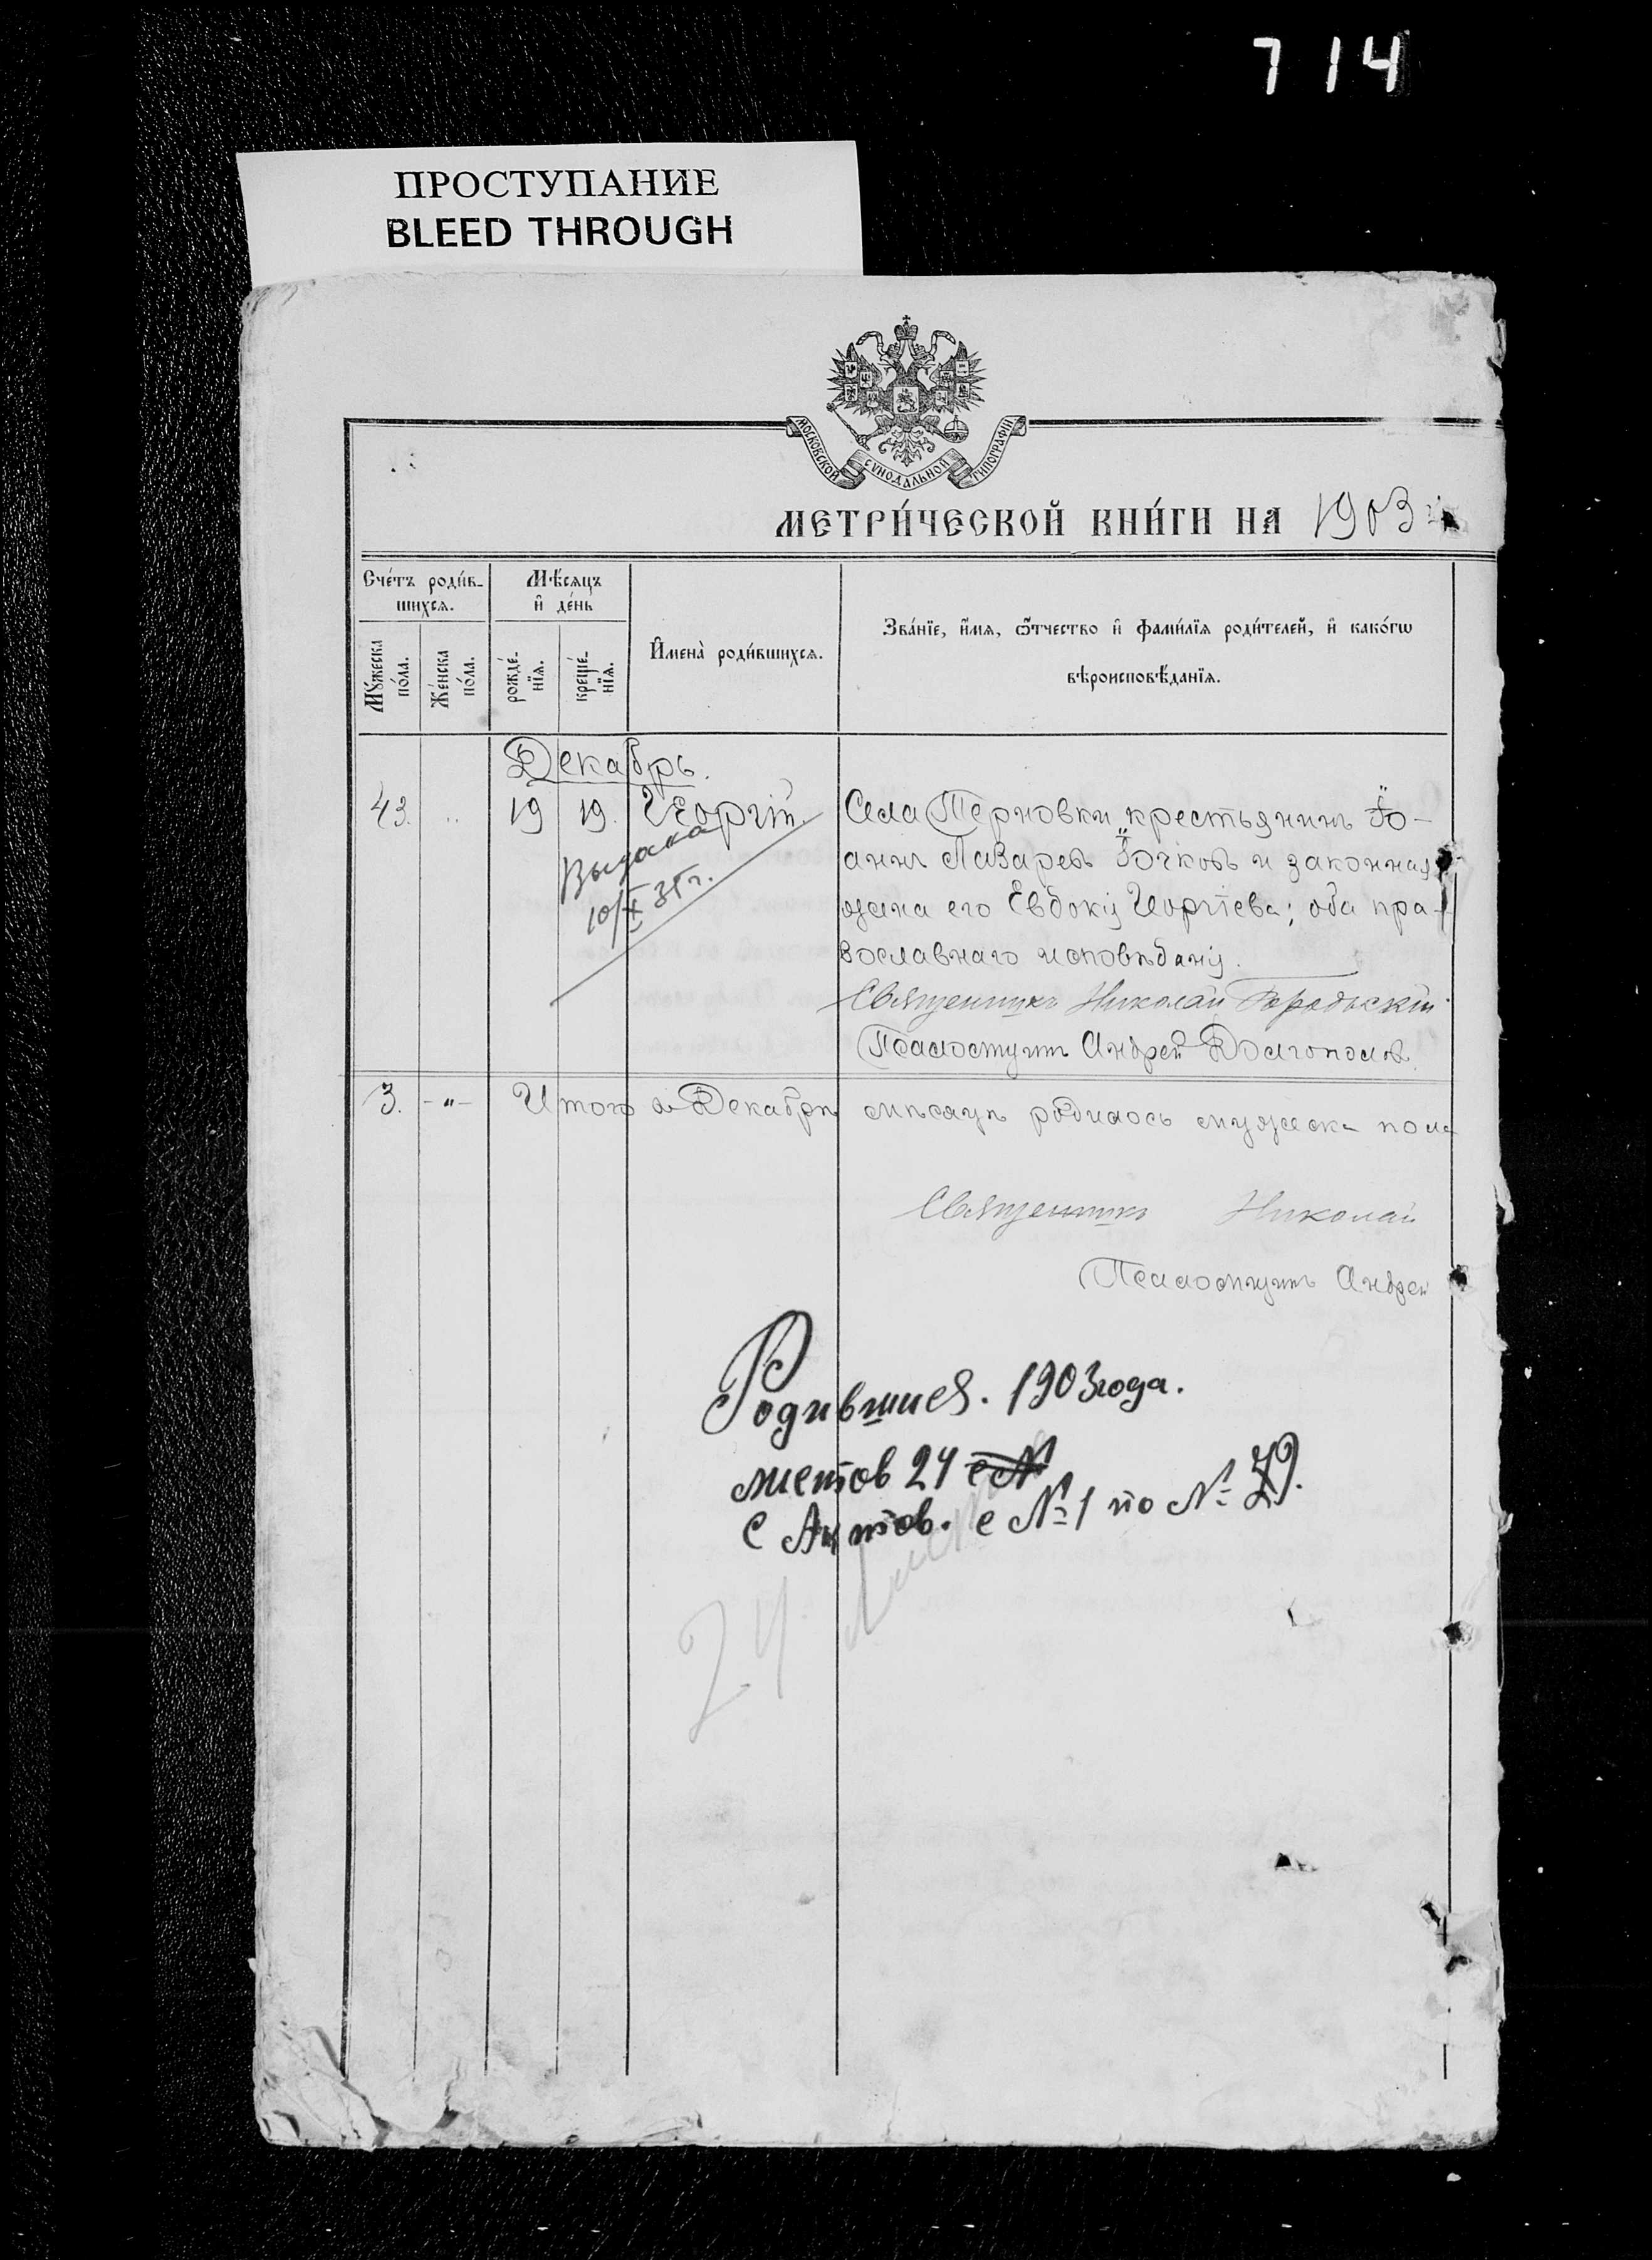 714
ПРОСТУПАНИЕ
BLEED THROUGH
МОСКОВСКОЙ СѴНОДАЛЬНОЙ ТИПОГРАФІИ
МЕТРИ́ЧЕСКОЙ КНИ́ГИ НА 1903
Сче́тъ роди́в-
шихсѧ.
Мѣ́сѧцъ
и҆ де́нь
Мꙋ́жеска
по́ла.
Же́нска
по́ла.
рожде́-
нїѧ.
креще́-
нїѧ.
И҆мена̀ роди́вшихсѧ.
Зва́нїе, и҆́мѧ, ѻ҆́тчество и҆ фами́лїѧ роди́телей, и҆ како́гѡ
вѣроисповѣ́данїѧ.
Декабрь.
43. 19 19. Георгій. Села Терновки крестьянинъ Іо-
аннъ Лазаревъ и законная
жена его Евдокія Георгіева; оба пра-
вославнаго исповѣданія.
Выдана
10/X 35 г.
Священникъ Николай
Псаломщикъ Андрей Долгополов
3. -"- Итого въ Декабрѣ мѣсяцѣ родилось мужеска пола
Священникъ Николай
Псаломщикъ Андрей
Родившиеся. 1903 года.
листов 24 с №
с Актов. с № 1 по № 79.
24 листа